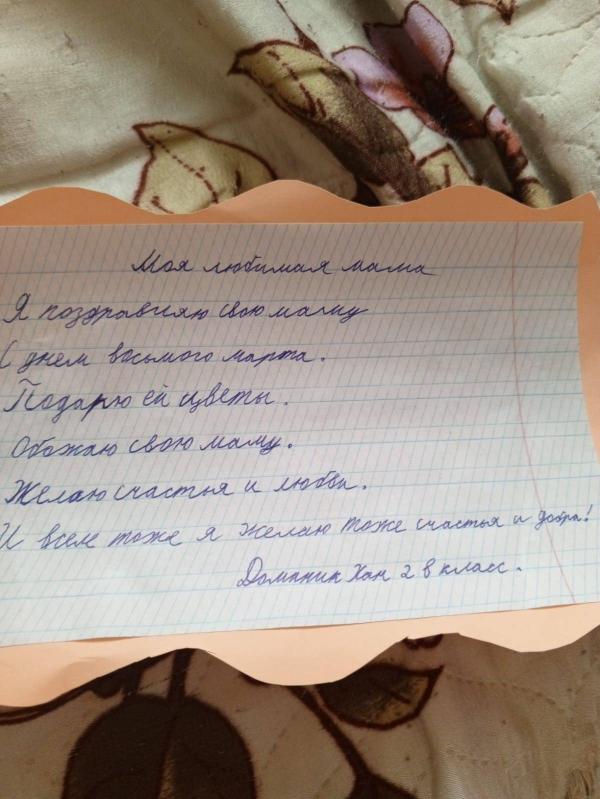 Моя любимая мама
Я поздравляю свою маму
С днем восьмого марта.
Подарю ей цветы.
Обожаю свою маму.
Желаю счастья и любви.
И всем тоже я желаю тоже счастья и добра!
Доминик Хан 2 в класс.